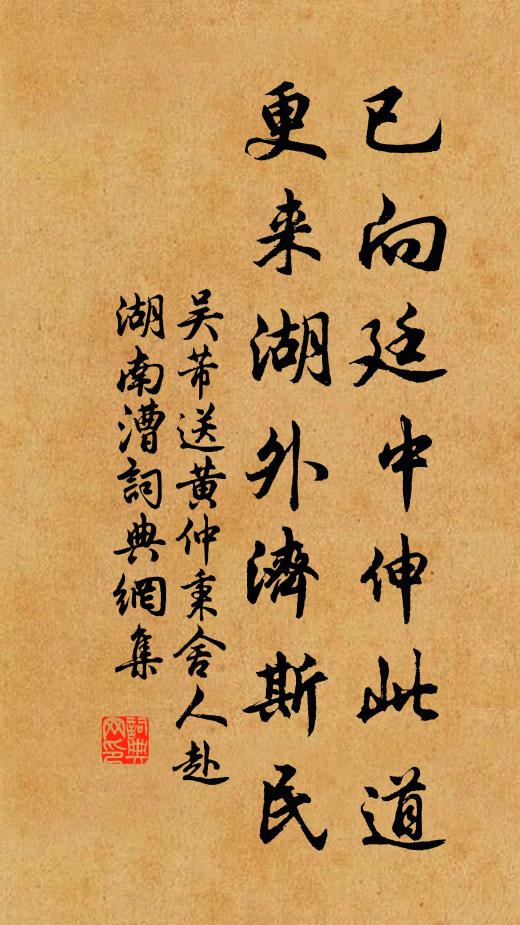 已向廷中伸此道
更来湖外濟斯民
吴芾送黄仲秉舍人赴
湖南漕詞典網集
詞典网印